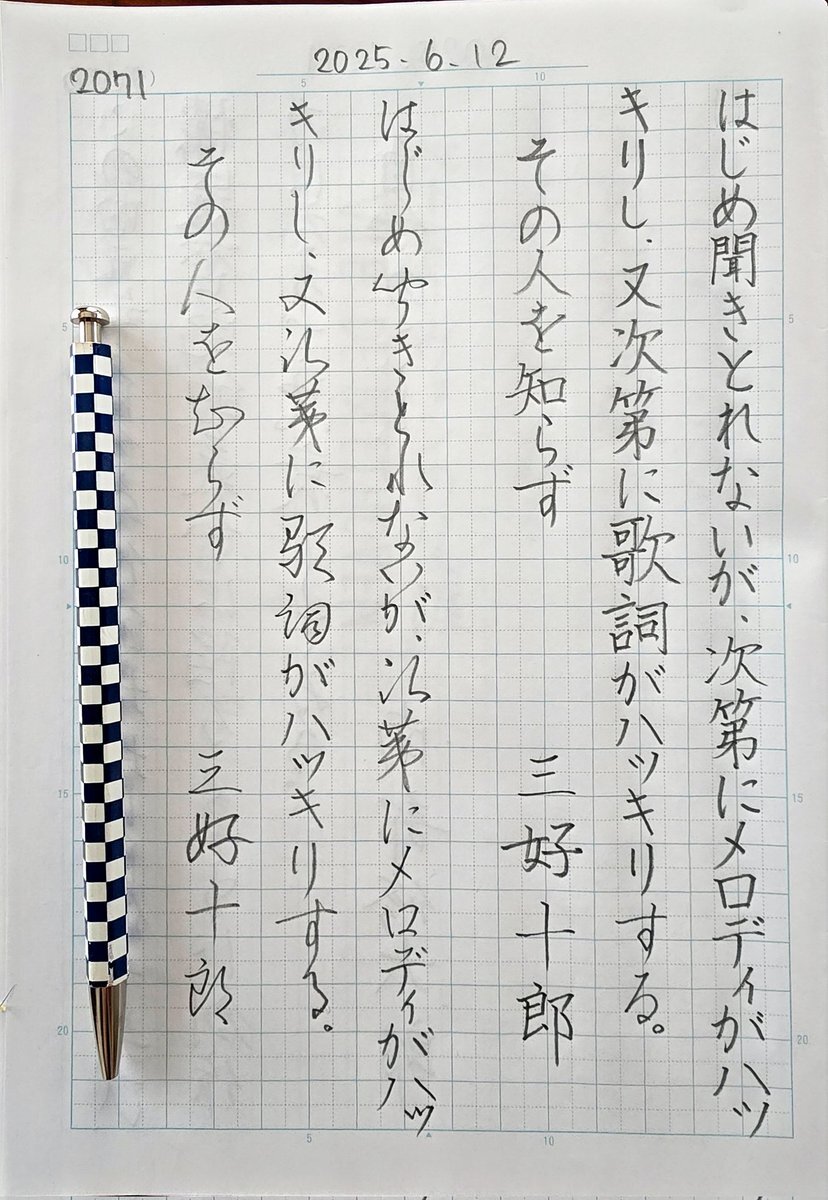 2025.6.12
2071
はじめ聞きとれないが、次第にメロディがハッ
キリし、又次第に歌詞がハッキリする。
その人を知らず 三好十郎
はじめ聞きとれないが、次第にメロディがハッ
キリし、又次第に歌詞がハッキリする。
その人を知らず 三好十郎
5
10
5
10
15
20
5
10
15
20
5
10